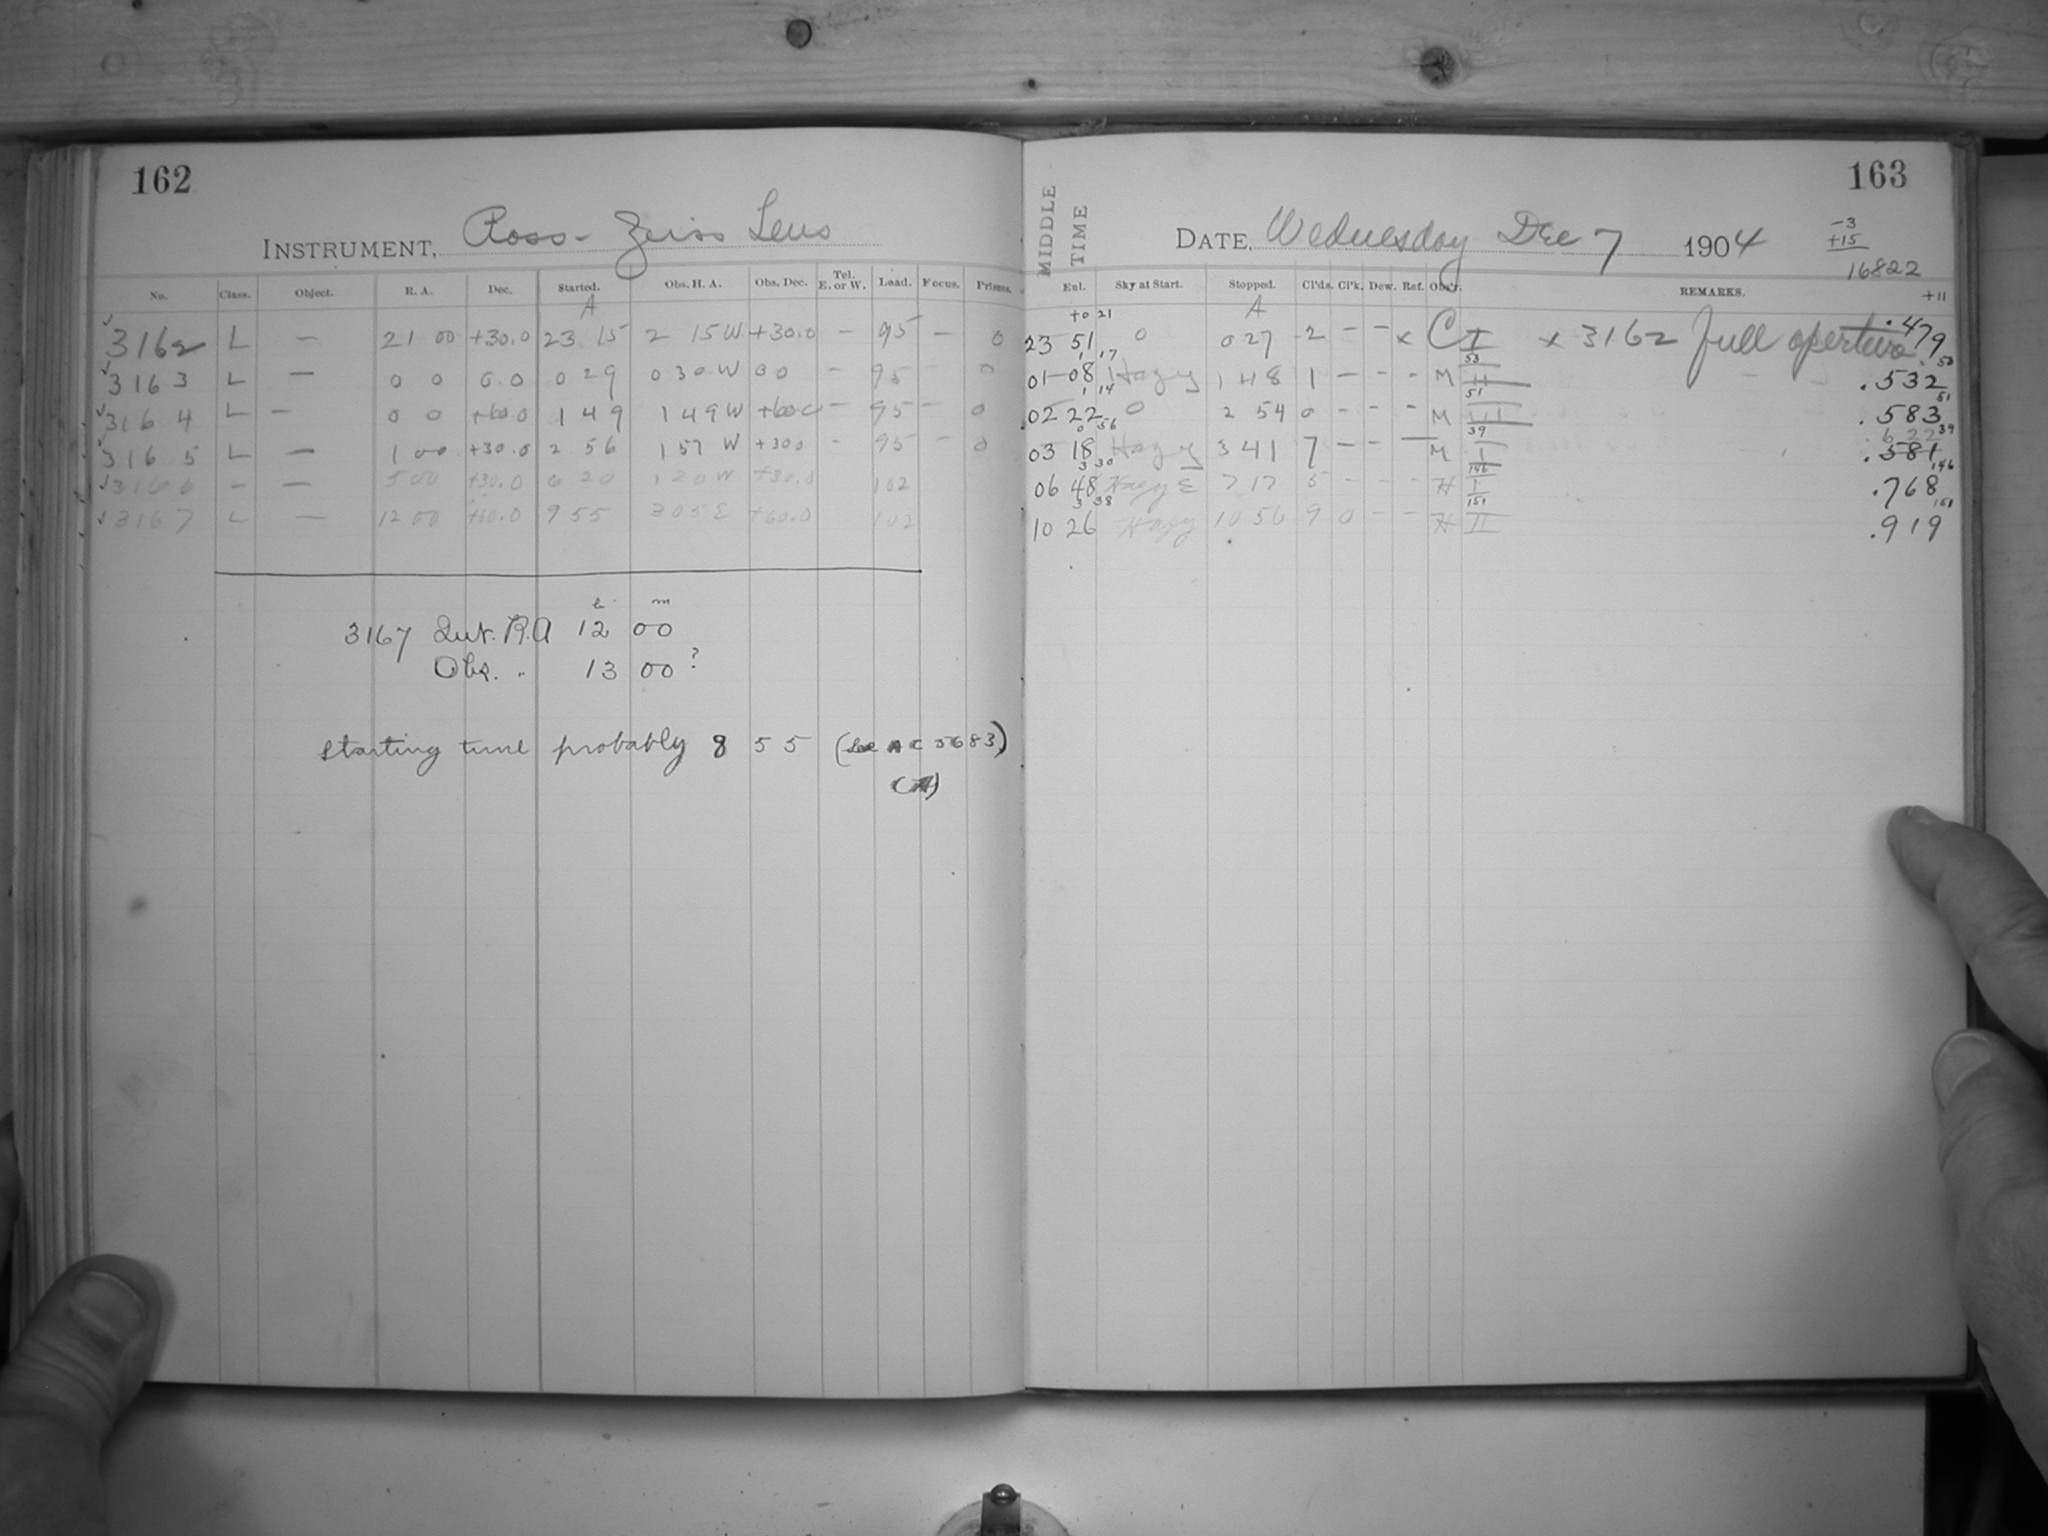 162
INSTRUMENT, Ross-Zeiss Lens
No. Class. Object. R. A. Dec. Started. Obs. H. A. Obs. Dec. Tel. E. or W. Load. Focus. Prisms.
A
3162 L — 21 00 +30.0 23 15 2 15 W +30.0 — 95 — 0
3163 L — 0 0 0.0 0 29 0 30 W 0 0 — 95 — 0
3164 L — 0 0 +60.0 1 49 1 49 W +60.0 — 95 — 0
3165 L — 1 00 +30.0 2 56 1 57 W +30.0 — 95 — 0
3166 — — 5 00 +30.0 6 20 1 20 W +30.0 102
3167 L — 12 00 +60.0 9 55 3 05 E +60.0 102
h m
3167 Int. R.A 12 00
Obs. " 13 00 ?
starting time probably 8 55 (see AC 5683)
163
MIDDLE TIME
DATE, Wednesday Dec 7 1904
-3
+15
16822
+11
Enl. Sky at Start. Stopped. Cl'ds. Cl'k. Dew. Ref. Obs'r. REMARKS.
+0 21 A
23 51 0 0 27 2 — — x C I x 3162 full aperture .479
1 17 53 53
01 08 Hazy 1 48 1 — — - M II .532
1 14 51 51
02 22 0 2 54 0 - - - M III .583
0 56 39 .622 39
03 18 Hazy 3 41 7 — — — M I .581
3 30 146 146
06 48 Hazy E 7 17 5 - - - H I .768
3 38 151 151
10 26 Hazy 10 56 9 0 - - H II .919